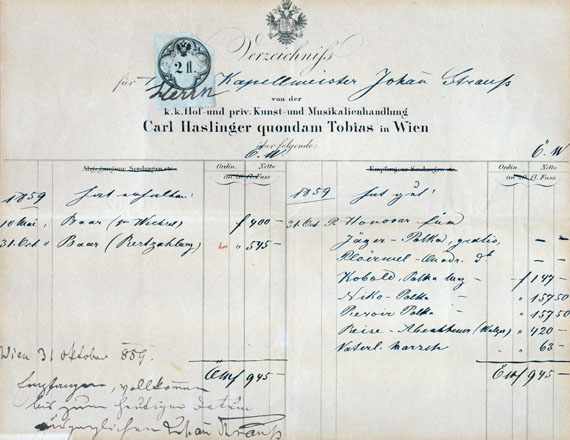 Verzeichniß
2 fl.
für Herrn Kapellmeister Johañ Strauß
von der
k.k. Hof- und priv. Kunst- und Musikalienhandlung
Carl Haslinger quondam Tobias in Wien
über folgende:
Ö. W. Ö. W
Abgegangene Sendungen etc. Ordin. Netto Empfang. u. Sendungen etc. Ordin. Netto
1859 hat erhalten: 1859 hat gut:
10 Mai, Baar (in Wechsel) f 400 — 31. Oct. P. Honorar für
31. Oct. " Baar (Restzahlung) " 545 — Jäger-Polka, gratis, — —
Ploërmel-Quadr. dº — —
Kobold, Polka Maz — f 147 —
Niko-Polka — " 157 50
Polka — " 157 50
Reise-Abentheuer (Walzer) " 420 —
Vaterl. Marsch " 63 —
ÖW f 945 — ÖW f 945 —
Wien 31 Oktober 859.
Empfangen, vollkommen
bis zum heutigen Datum
ausgeglichen Johañ Strauß